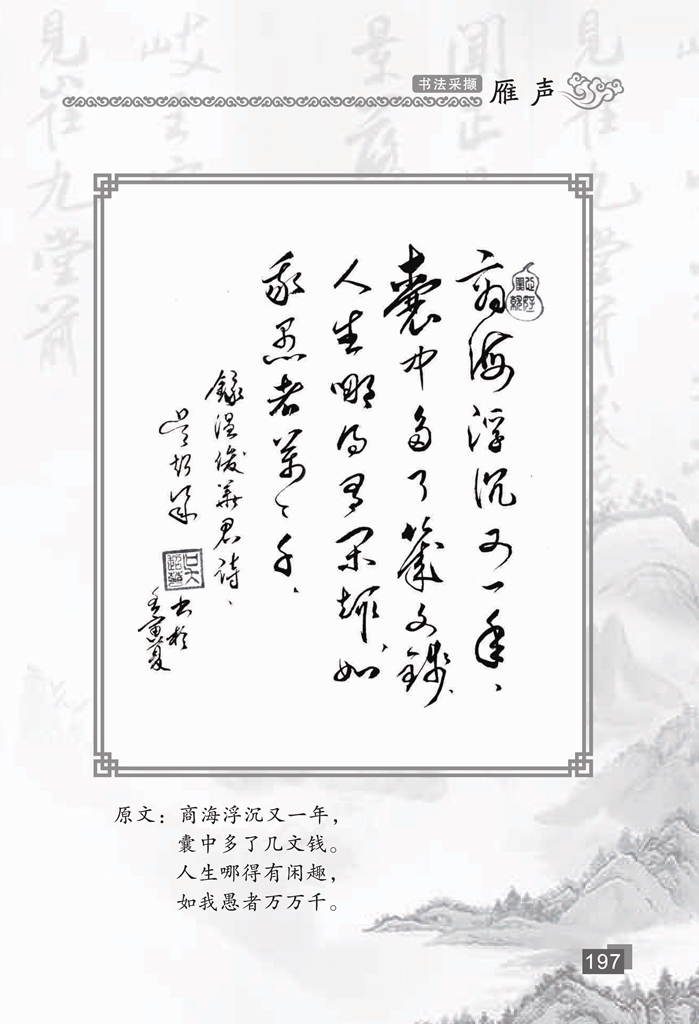 书法采撷
雁声
商海浮沉又一年、
囊中多了几文钱、
人生哪得有闲趣、如
我愚者万〻千、
录温俊华君诗、
书于
壬寅夏
原文：商海浮沉又一年，
囊中多了几文钱。
人生哪得有闲趣，
如我愚者万万千。
197